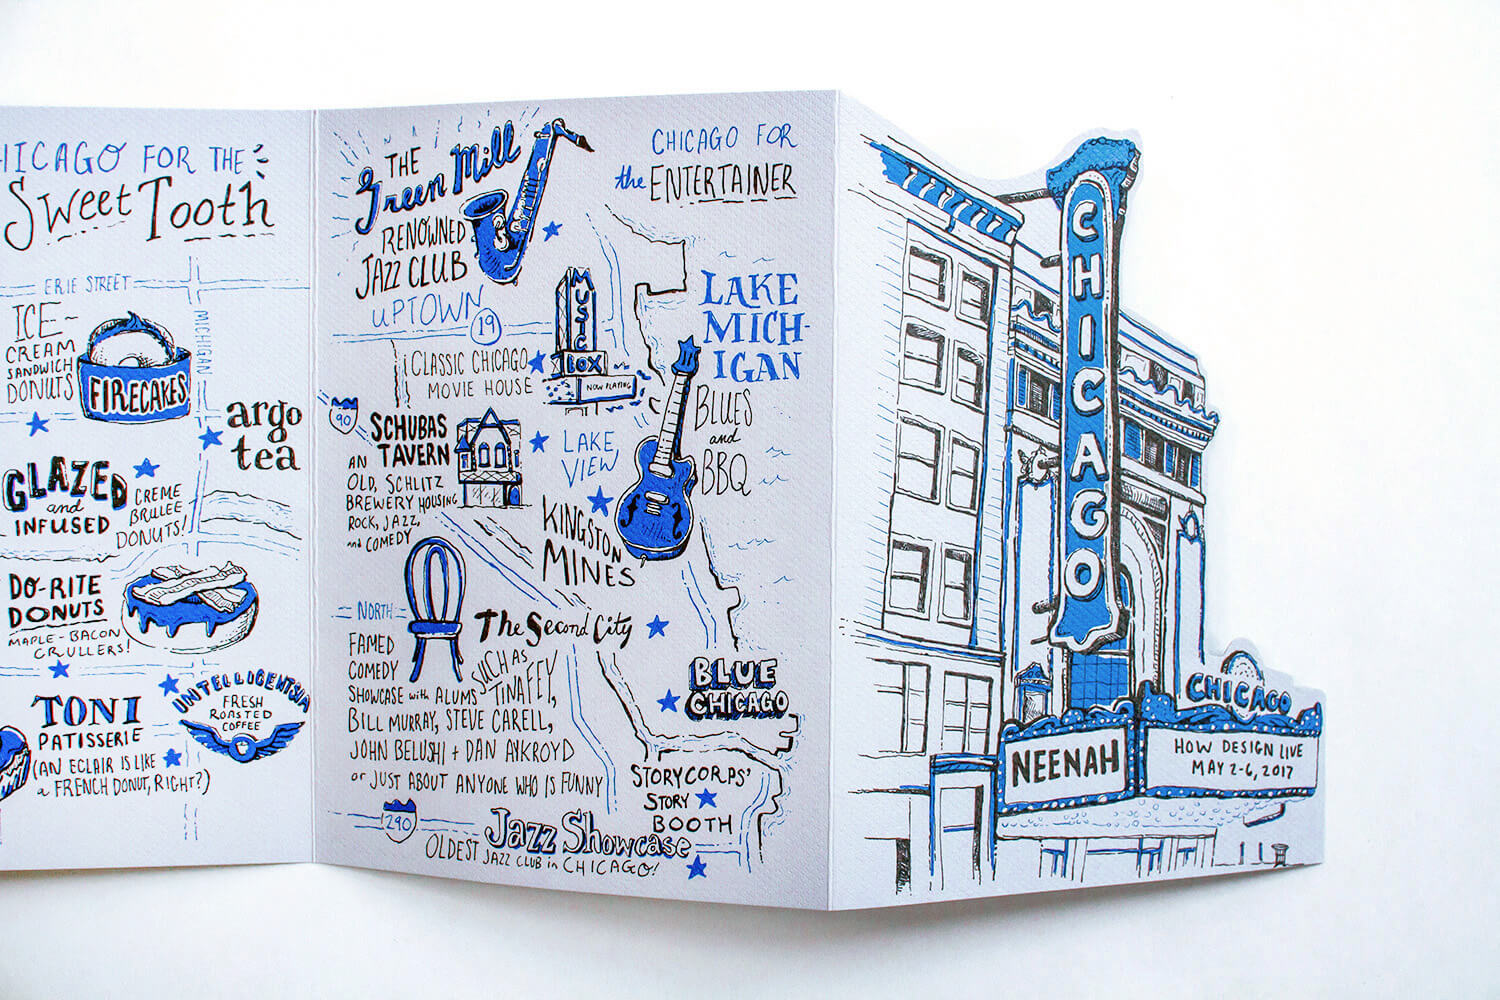 HICAGO FOR THE
SWEET TOOTH
ERIE STREET
MICHIGAN
ICE-
CREAM
SANDWICH
DONUTS
FIRECAKES
argo
tea
GLAZED
and
INFUSED
CREME
BRULEE
DONUTS!
DO-RITE
DONUTS
MAPLE-BACON
CRULLERS!
TONI
PATISSERIE
(AN ECLAIR IS LIKE
a FRENCH DONUT, RIGHT?)
INTELLIGENTSIA
FRESH
ROASTED
COFFEE
THE
Green Mill
RENOWNED
JAZZ CLUB
UPTOWN
19
CHICAGO FOR
the ENTERTAINER
MUSIC
BOX
NOW PLAYING
CLASSIC CHICAGO
MOVIE HOUSE
LAKE
MICH-
IGAN
90
SCHUBAS
TAVERN
AN
OLD, SCHLITZ
BREWERY HOUSING
ROCK, JAZZ,
and COMEDY
LAKE
VIEW
BLUES
and
BBQ
KINGSTON
MINES
NORTH
The Second City
FAMED
COMEDY
SHOWCASE with ALUMS SUCH AS
TINA FEY,
BILL MURRAY, STEVE CARELL,
JOHN BELUSHI + DAN AYKROYD
or JUST ABOUT ANYONE WHO IS FUNNY
BLUE
CHICAGO
STORYCORPS'
STORY
BOOTH
290
Jazz Showcase
OLDEST JAZZ CLUB in CHICAGO!
CHICAGO
CHICAGO
NEENAH
HOW DESIGN LIVE
MAY 2-6, 2017